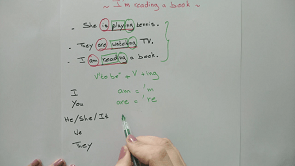 ~ I'm reading a book ~
. She is playing tennis.
. They are watching TV.
. I am reading a book.
V"to be" + V + ing
I am = 'm
You are = 're
He/She/It
We
They